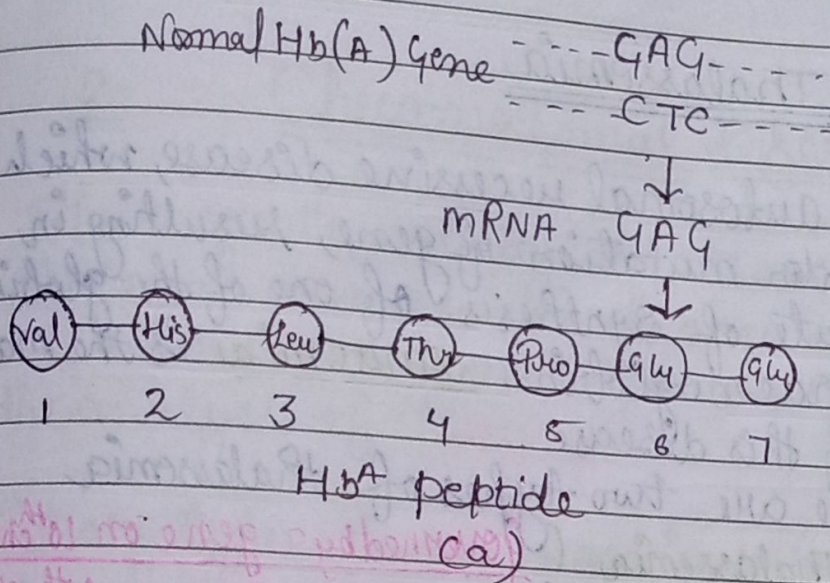 Normal Hb(A) Gene ----GAG----
---- CTC----
mRNA GAG
Val His Leu Thr Pro Glu Glu
1 2 3 4 5 6 7
HbA peptide
(a)